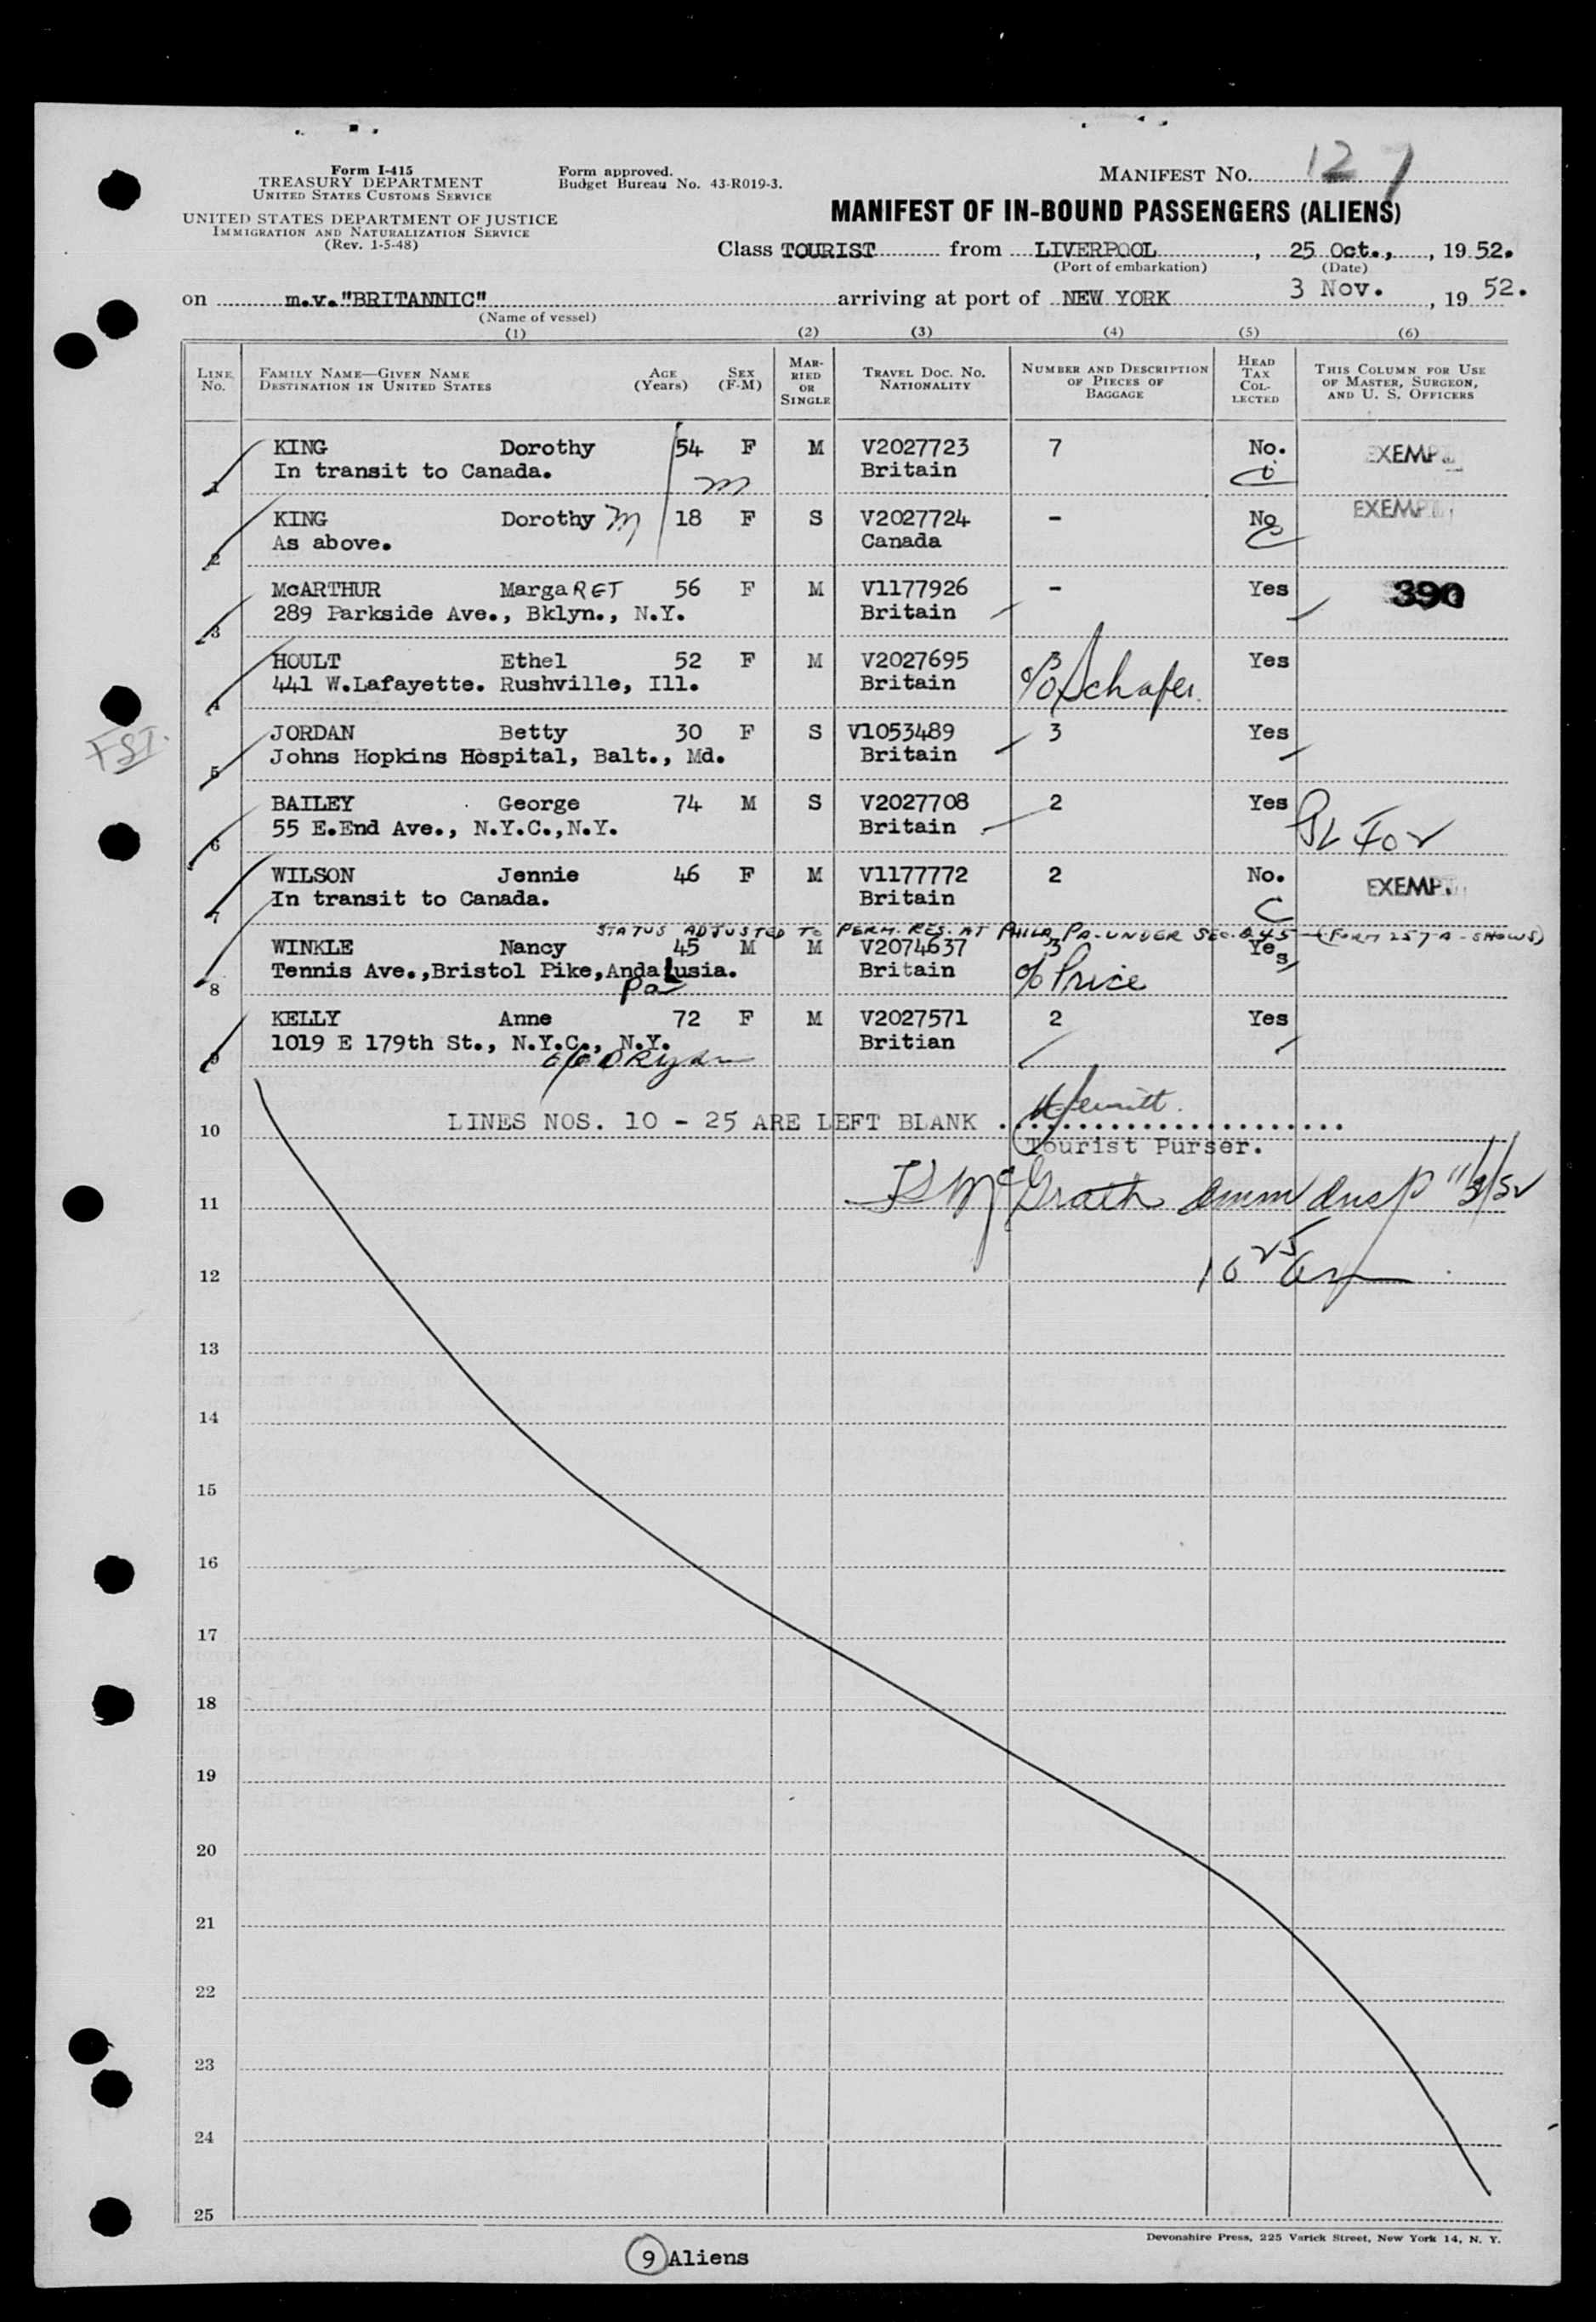 Form I-415
TREASURY DEPARTMENT
UNITED STATES CUSTOMS SERVICE
UNITED STATES DEPARTMENT OF JUSTICE
IMMIGRATION AND NATURALIZATION SERVICE
(Rev. 1-5-48)
Form approved.
Budget Bureau No. 43-R019-3.
MANIFEST NO. 127
MANIFEST OF IN-BOUND PASSENGERS (ALIENS)
Class TOURIST from LIVERPOOL, 25 Oct., , 19 52.
(Port of embarkation) (Date)
on m.v."BRITANNIC" arriving at port of NEW YORK 3 Nov. , 19 52.
(Name of vessel)
(1) (2) (3) (4) (5) (6)
LINE No. FAMILY NAME—GIVEN NAME DESTINATION IN UNITED STATES AGE (Years) SEX (F-M) MARRIED OR SINGLE TRAVEL DOC. NO. NATIONALITY NUMBER AND DESCRIPTION OF PIECES OF BAGGAGE HEAD TAX COLLECTED THIS COLUMN FOR USE OF MASTER, SURGEON, AND U. S. OFFICERS
KING Dorothy 54 F M V2027723 7 No. EXEMPT
1 In transit to Canada. m Britain C
KING Dorothy M 18 F S V2027724 - No EXEMPT
2 As above. Canada C
McARTHUR MargaRET 56 F M V1177926 - Yes 390
3 289 Parkside Ave., Bklyn., N.Y. Britain
HOULT Ethel 52 F M V2027695 Yes
4 441 W.Lafayette. Rushville, Ill. Britain c/o Schafer
JORDAN Betty 30 F S V1053489 3 Yes
5 Johns Hopkins Hospital, Balt., Md. Britain
BAILEY George 74 M S V2027708 2 Yes
6 55 E.End Ave., N.Y.C.,N.Y. Britain
WILSON Jennie 46 F M V1177772 2 No. EXEMPT
7 In transit to Canada. Britain C
STATUS ADJUSTED TO PERM. RES. AT PHILA, PA-UNDER SEC. 245 (FORM 257A-SHOWS)
WINKLE Nancy 45 M M V2074637 3 Yes
8 Tennis Ave.,Bristol Pike,Andalusia. Pa Britain c/o Price
KELLY Anne 72 F M V2027571 2 Yes
9 1019 E 179th St., N.Y.C., N.Y. Britian
LINES NOS. 10 - 25 ARE LEFT BLANK ......................
10 Tourist Purser.
11 McGrath 11/3/52
12 10 25 am
13
14
15
16
17
18
19
20
21
22
23
24
25
Devonshire Press, 225 Varick Street, New York 14, N. Y.
9 Aliens